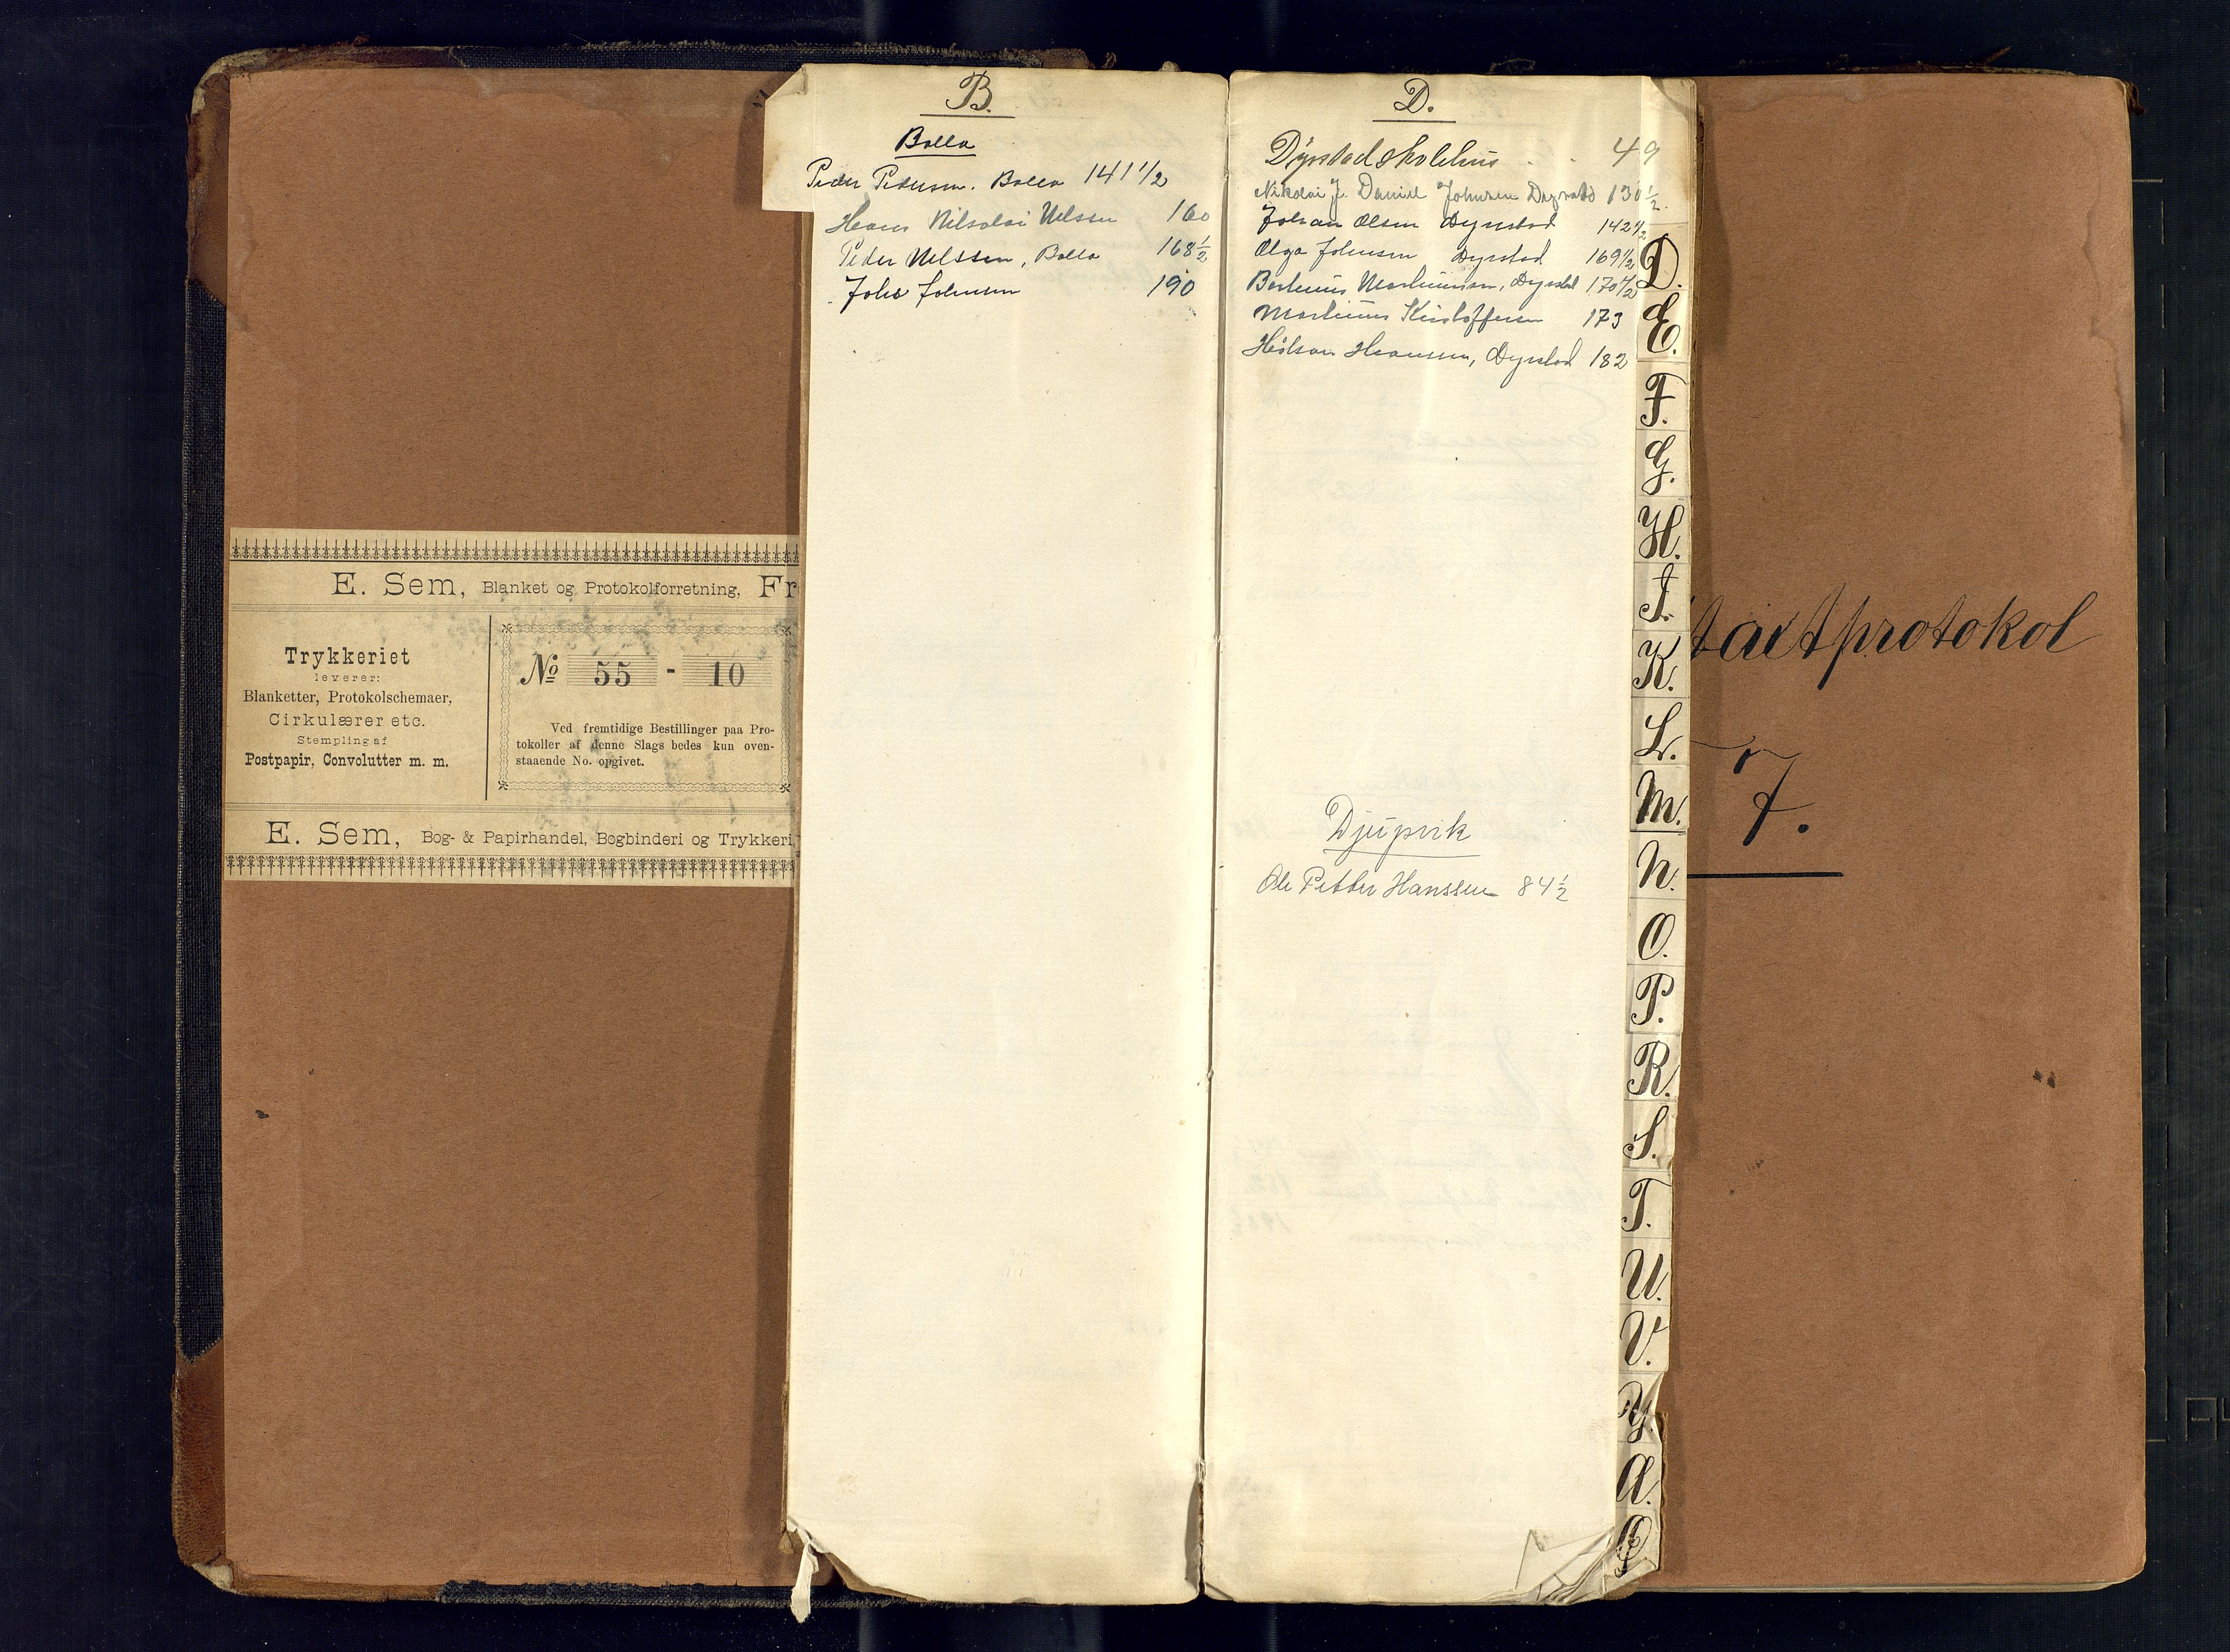 E. Sem, Blanket og Protokolforretning, Fr
Trykkeriet
leverer:
Blanketter, Protokolschemaer,
Cirkulærer etc.
Stempling af
Postpapir, Convolutter m. m.
No 55 - 10
Ved fremtidige Bestillinger paa Pro-
tokoller af denne Slags bedes kun oven-
staaende No. opgivet.
E. Sem, Bog- & Papirhandel, Bogbinderi og Trykkeri,
B.
Bolla
Peder Pedersen. Bolla 141 1/2
Hans Nikolai Nilssen 160
Peder Nilssen, Bolla 168 1/2
Johs Johnsen 190
D.
Dyrstad skolehus . . 49
Nikolai J. Daniel Johnsen Dyrstad 130 1/2
Johan Olsen Dyrstad 142 1/2
Olga Johnsen Dyrstad 169 1/2
Martinussen, Dyrstad 170 1/2
Martinus Kristoffersen 173
Hanssen, Dyrstad 182
Djupvik
Ole Petter Hanssen 84 1/2
D.
E.
F.
G.
H.
I.
K.
L.
M.
N.
O.
P.
R.
S.
T.
U.
V.
Y.
Æ.
Ø.
taxtprotokol
7.